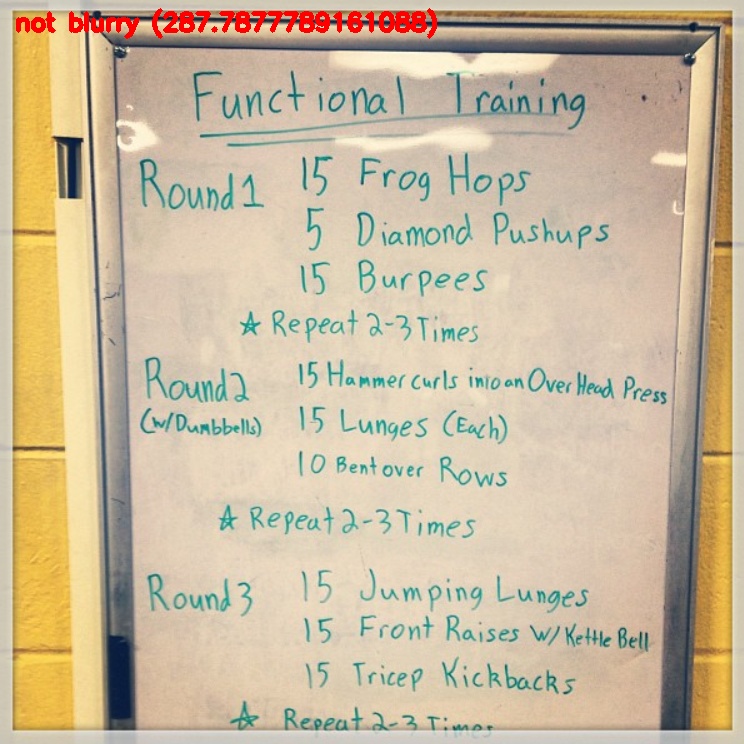 not blurry (287.7877789161088)
Functional Training
Round 1 15 Frog Hops
5 Diamond Pushups
15 Burpees
☆ Repeat 2-3 Times
Round 2 15 Hammer curls into an Over Head Press
(w/Dumbbells) 15 Lunges (Each)
10 Bent over Rows
☆ Repeat 2-3 Times
Round 3 15 Jumping Lunges
15 Front Raises w/ Kettle Bell
15 Tricep Kickbacks
☆ Repeat 2-3 Times